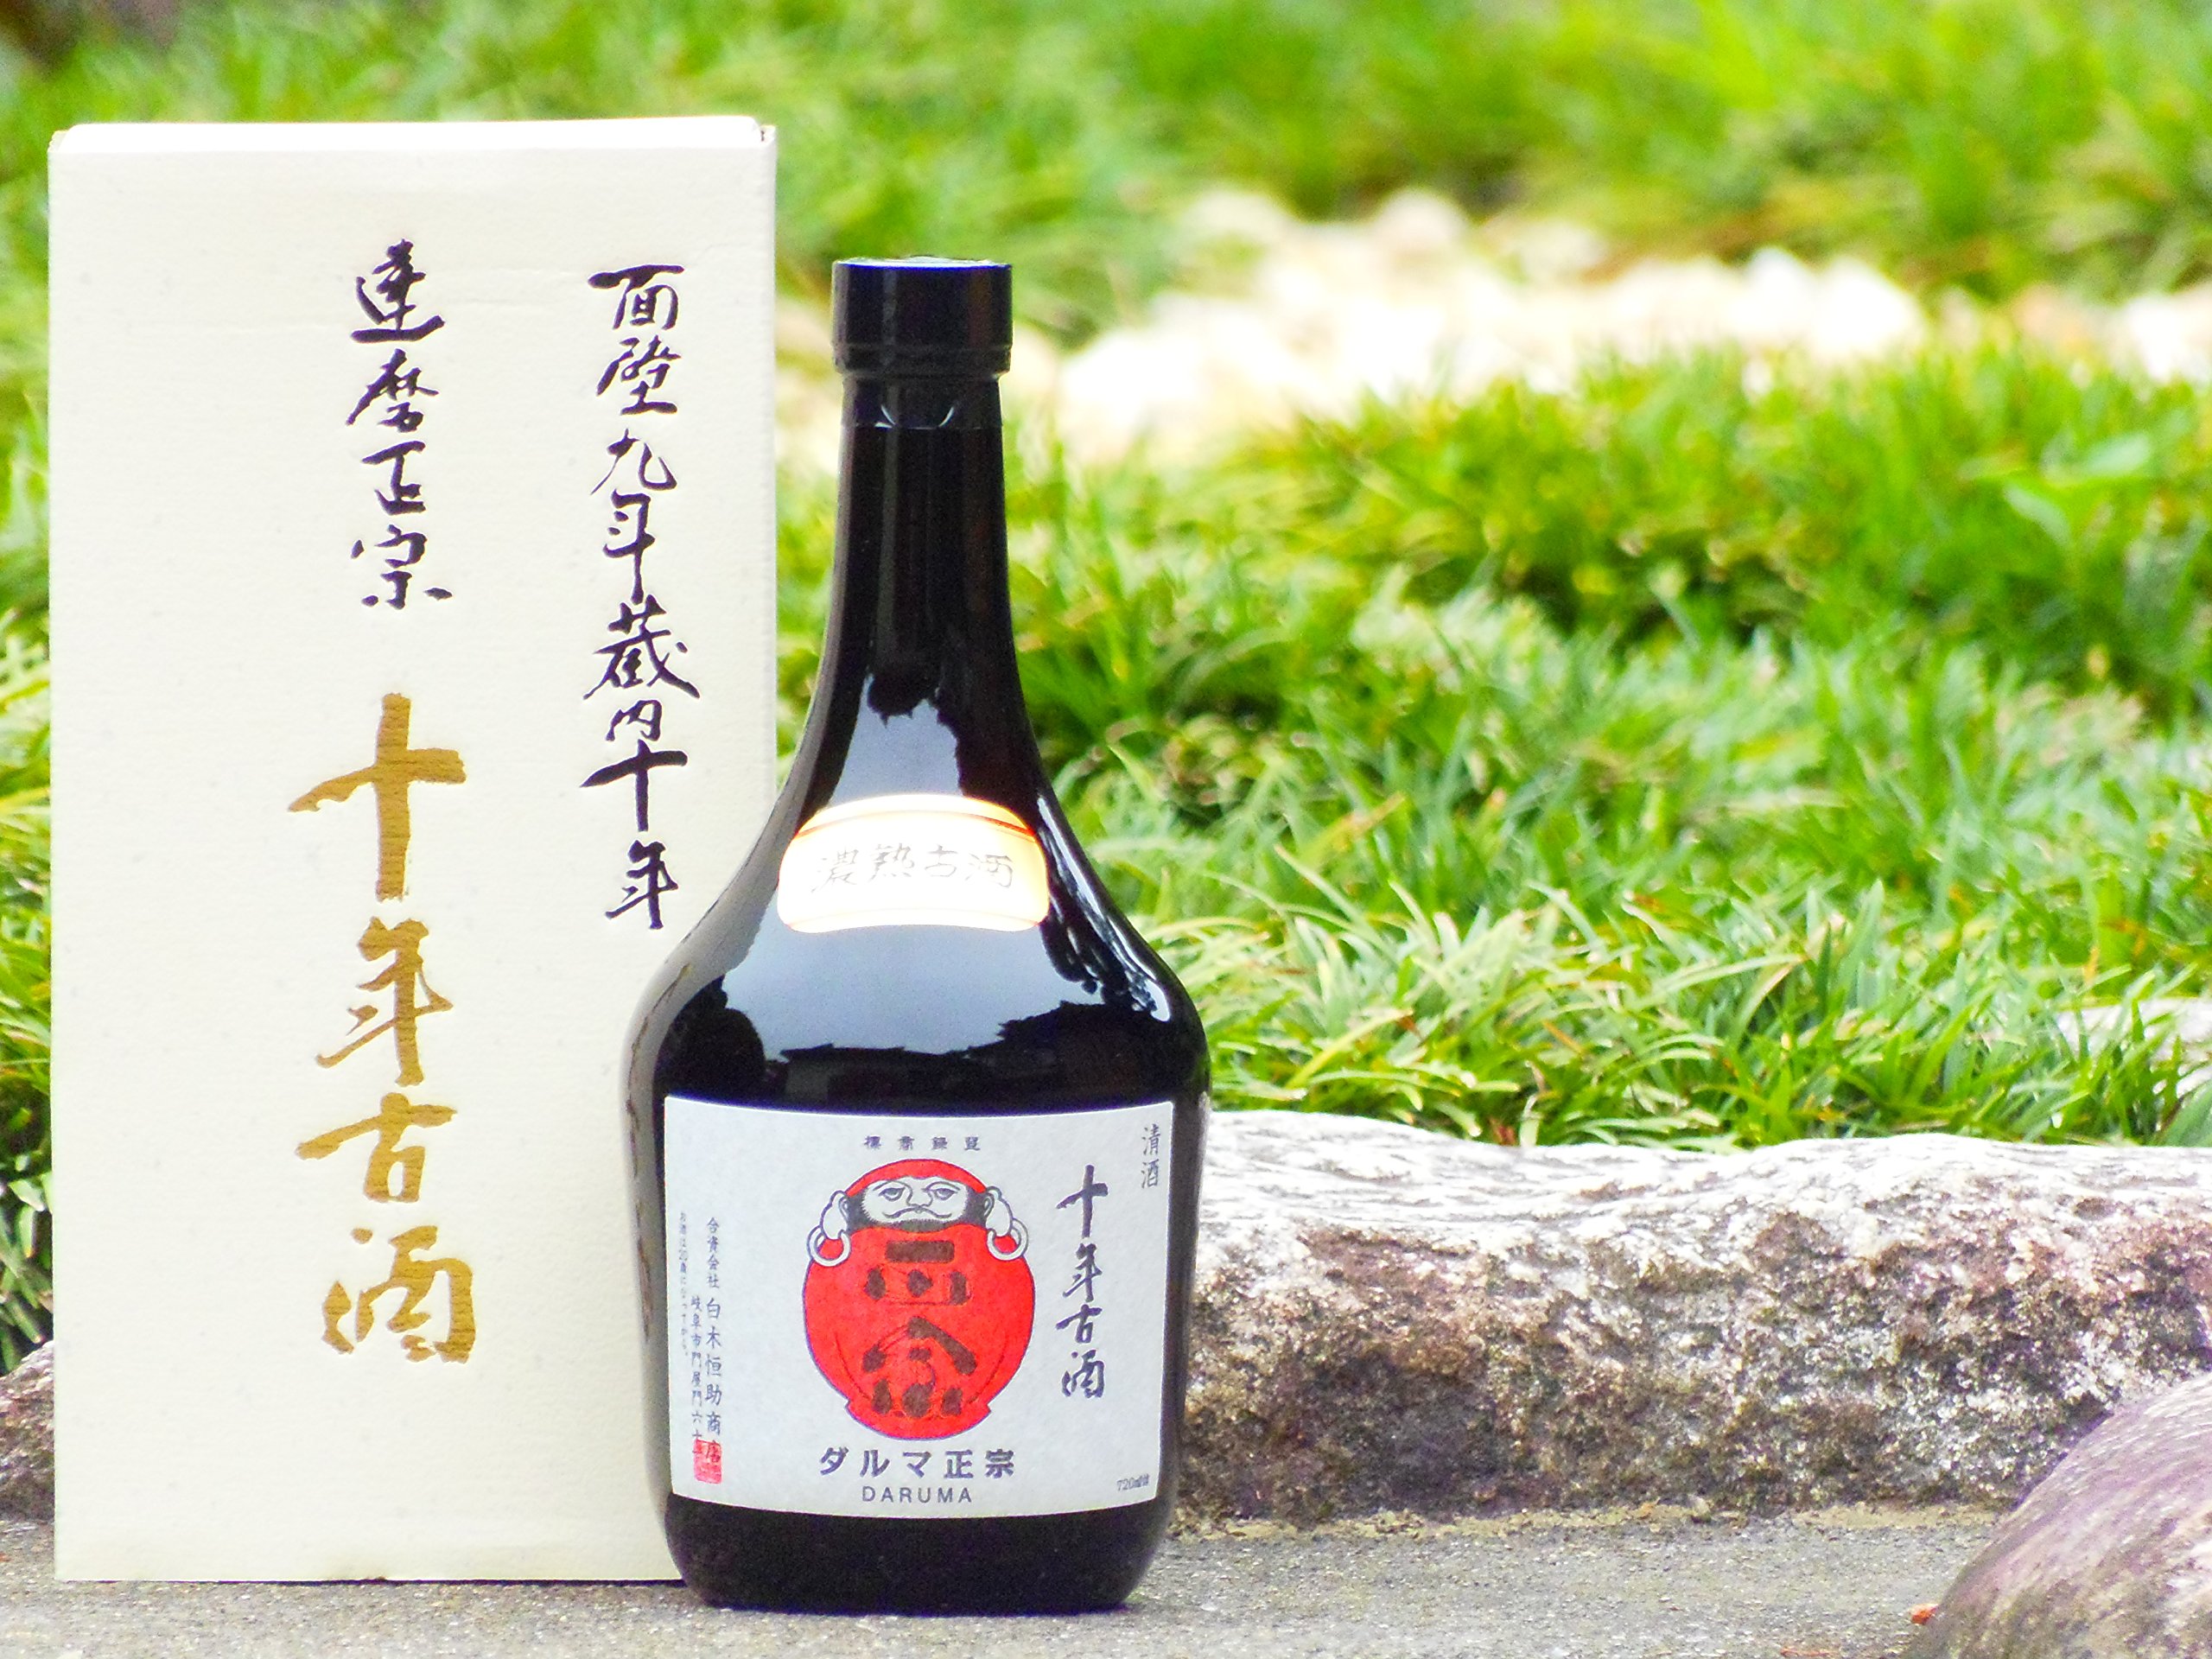 面壁九年蔵内十年
達磨正宗 十年古酒
濃熟古酒
登録商標
清酒
十年古酒
正宗
合資会社 白木恒助商店
岐阜市門屋門六十一
お酒は20歳になってから。
ダルマ正宗
DARUMA
720ml詰